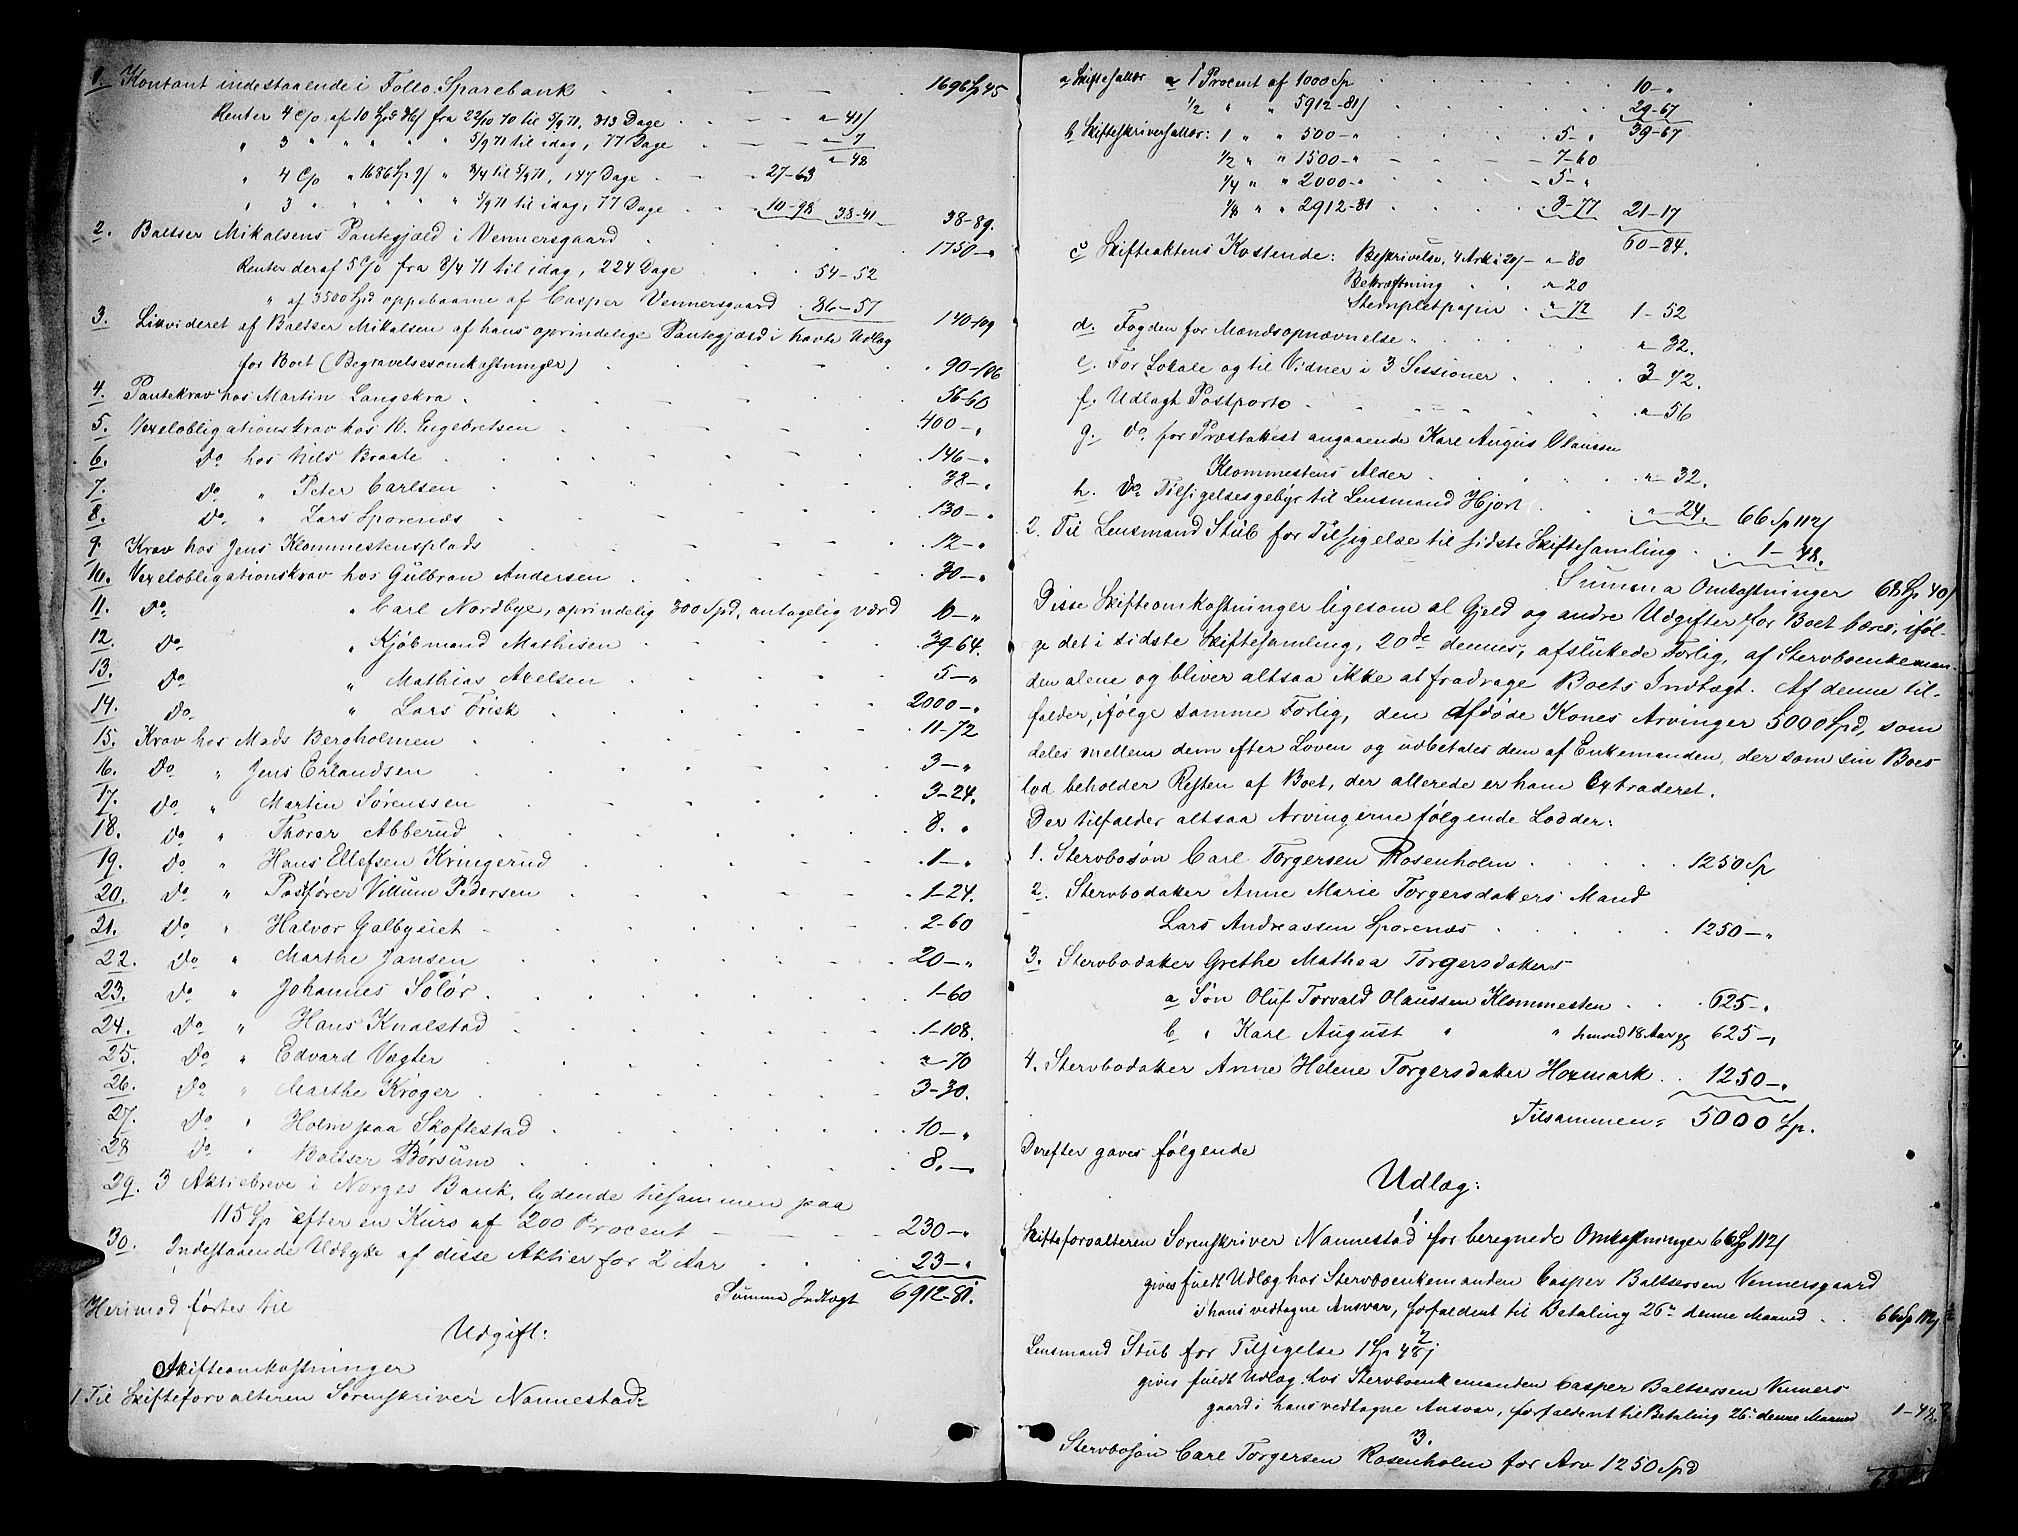 1. Kontant indestaaende i Follo Sparebank . . . . 1696 Sp 45
Renter 4 c/o af 10 Spd 36/ fra 22/10 70 til 5/9 71, 313 Dage . . . " 41/
" 3 " " " " " 5/9 71 til idag, 77 Dage . . . " 7
" 48
" 4 c/o " 1686 Sp 9/ " 8/4 til 5/9 71, 147 Dage . . 27-63
" 3 " " " " " 5/9 71 til idag, 77 Dage . . 10-98 38-41 38-89.
2. Baltser Mikalsens Pantegjæld i Vennersgaard . . . 1750-"
Renter deraf 5 c/o fra 8/4 71 til idag, 224 Dage . . 54-52
" af 3500 Spd oppebaarne af Casper Vennersgaard . 86-57 140-109
3. Likvideret af Baltser Mikalsen af hans oprindelige Pantegjæld i havte Udlæg
for Boet (Begravelsesomkostninger) . . . 90-106
4. Pantekrav hos Martin Langekra . . . 56-60
5. Vexelobligationskrav hos N. Engebretsen . . . 400-"
6. Do hos Nils Braate . . . 146-"
7. Do " Peter Carlsen . . . 38-"
8. Do " Lars Sporenæs . . . 130-"
9. Krav hos Jens Klommestensplads . . . 12-"
10. Vexelobligationskrav hos Gulbran Andersen . . . 30-"
11. Do " Carl Nordbye, oprindelig 300 Spd, antagelig værd 6-"
12. Do " Kjøbmand Mathisen . . . 39-64.
13. Do " Mathias Axelsen . . . 5-"
14. Do " Lars Frisk . . . 2000-"
15. Krav hos Mads Bergholmen . . . 11-72
16. Do " Jens Erlandsen . . . 3-"
17. Do " Martin Sørenssen . . . 3-24.
18. Do " Thorer Abberud . . . 8. "
19. Do " Hans Ellefsen Kringerud . . . 1-"
20. Do " Postfører Villum Pedersen . . . 1-24.
21. Do " Halvor Galbysiet . . . 2-60
22. Do " Marthe Jansen . . . 20-"
23. Do " Johannes Solør . . . 1-60
24. Do " Hans Knalstad . . . 1-108.
25. Do " Edvard Vægter . . . "-70
26. Do " Marthe Krøger . . . 3-30.
27. Do " Holm paa Skoftestad . . . 10-"
28 Do " Baltser Børsum . . . 8.-
29. 3 Aktiebreve i Norges Bank, lydende tilsammen paa
115 Sp efter en Kurs af 200 Procent . . . 230-"
30. Indestaaende Udbytte af disse Aktier for 2 Aar . . . 23-"
Summa Indtægt 6912-81.
Herimod førtes til
Udgift:
Skifteomkostninger
1. Til Skifteforvalteren Sorenskriver Nannestad:
a Skiftesallær a 1 Procent af 1000 Sp . . . 10-"
1/2 " " 5912-81/ . . . 29-67
39-67
b Skifteskriversallær: 1 " " 500-" . . 5-"
1/2 " " 1500-" . . 7-60
1/4 " " 2000-" . . 5-"
1/8 " " 2912-81 . . 3-77 21-17
60-84.
c Skifteaktens Kostende: Beskrivelse, 4 Ark à 20/- " 80
Bekræftning . . " 20
Stemplet papir . " 72 1-52
d. Fogden for Mændsopnævnelse . . . "-32.
e. For Lokale og til Vidner i 3 Sessioner . . . 3-42.
f. Udlagt Postporto . . . "-56
g. Do for Præstattest angaaende Karl Augus Olaussen
Klommestens Alder . . . "-32.
h. Do Tilsigelsesgebyr til Lensmand Hjort . . "-24. 66 Sp 112/
2. Til Lensmand Stub for Tilsigelse til sidste Skiftesamling . . 1-48.
Summa Omkostninger 68 Sp 40/
Disse Skifteomkostninger ligesom al Gjeld og andre Udgifter for Boet bæres, iføl-
ge det i sidste Skiftesamling, 20de dennes, afsluttede Forlig, af Stervboenkeman-
den alene og bliver altsaa ikke at fradrage Boets Indtægt. Af denne til-
falder, ifølge samme Forlig, den afdøde Kones Arvinger 5000 Spd, som
deles mellem dem efter Loven og udbetales dem af Enkemanden, der som sin Boes
lod beholder Resten af Boet, der allerede er ham Extraderet.
Der tilfalder altsaa Arvingerne følgende Lodder:
1. Stervbosøn Carl Torgersen Rosenholm . . . 1250 Sp
2. Stervbodatter Anne Marie Torgersdatters Mand
Lars Andreassen Sporenæs . . . 1250-"
3. Stervbodatter Grethe Mathea Torgersdatters
a Søn Oluf Torvald Olaussen Klommesten . . 625-"
b " Karl August " " henved 18 Aar gl 625-"
4. Stervbodatter Anne Helene Torgersdatter Hoxmark . . 1250-"
Tilsammen = 5000 Sp.
Derefter gaves følgende
Udlæg:
1.
Skifteforvalteren Sorenskriver Nannestad for beregnede Omkostninger 66 Sp 112/
gives fuldt Udlæg hos Stervboenkemanden Casper Baltsersen Vennersgaard
i hans vedtagne Ansvar, forfaldent til Betaling 26de denne Maaned . . 66 Sp 112/
2
Lensmand Stub for Tilsigelse 1 Sp 48/
gives fuldt Udlæg hos Stervboenkemanden Casper Baltsersen Venners
gaard i hans vedtagne Ansvar, forfaldent til Betaling 26de denne Maaned 1-48.
3.
Stervbosøn Carl Torgersen Rosenholm for Arv 1250 Spd